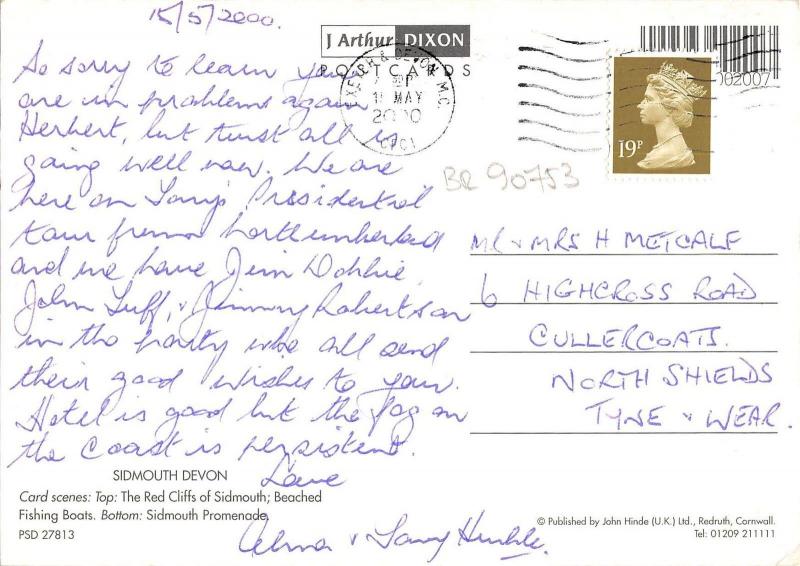 15/5/2000.
So sorry to learn you
are in problems again
Herbert, but trust all is
going well now. We are
here on Tony's Presidential
tour from Northumberland
and we have Jim Dobbie,
John Tuff, & Jimmy Robertson
in the party who all send
their good wishes to you.
Hotel is good but the fog on
the coast is persistent.
Love
Alma & Tony
SIDMOUTH DEVON
Card scenes: Top: The Red Cliffs of Sidmouth; Beached
Fishing Boats. Bottom: Sidmouth Promenade.
PSD 27813
J Arthur DIXON
POSTCARDS
EXETER & DEVON M.C.
MAY
2000
002007
19P
BR 90753
MR & MRS H METCALF
6 HIGHCROSS ROAD
CULLERCOATS.
NORTH SHIELDS
TYNE & WEAR.
© Published by John Hinde (U.K.) Ltd., Redruth, Cornwall.
Tel: 01209 211111